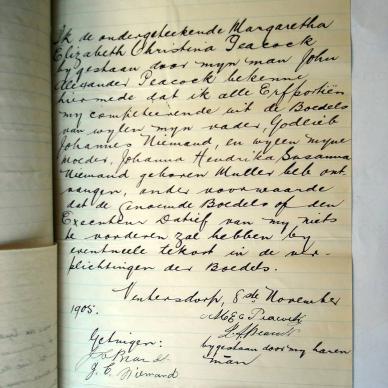 Ik de ondergeteekende Margaretha
Elizabeth Christina Peacock
bygestaan door myn man John
Alexander Peacock bekenne
hiermede dat ik alle Erfportiën
my competeerende uit de Boedels
van wylen myn vader, Godlieb
Johannes Niemand, en wylen myne
moeder, Johanna Hendrika Susanna
Niemand geboren Muller heb ont
vangen, onder voorwaarde
dat de genoemde Boedels of den
Executeur Datief van my niets
te vorderen zal hebben by
eventueele tekort in de ver-
plichtingen der Boedels.
Ventersdorp, 8ste November
1905.
M E C Peacock
Getuigen:
bygestaan door my haren
man
J. C. Niemand